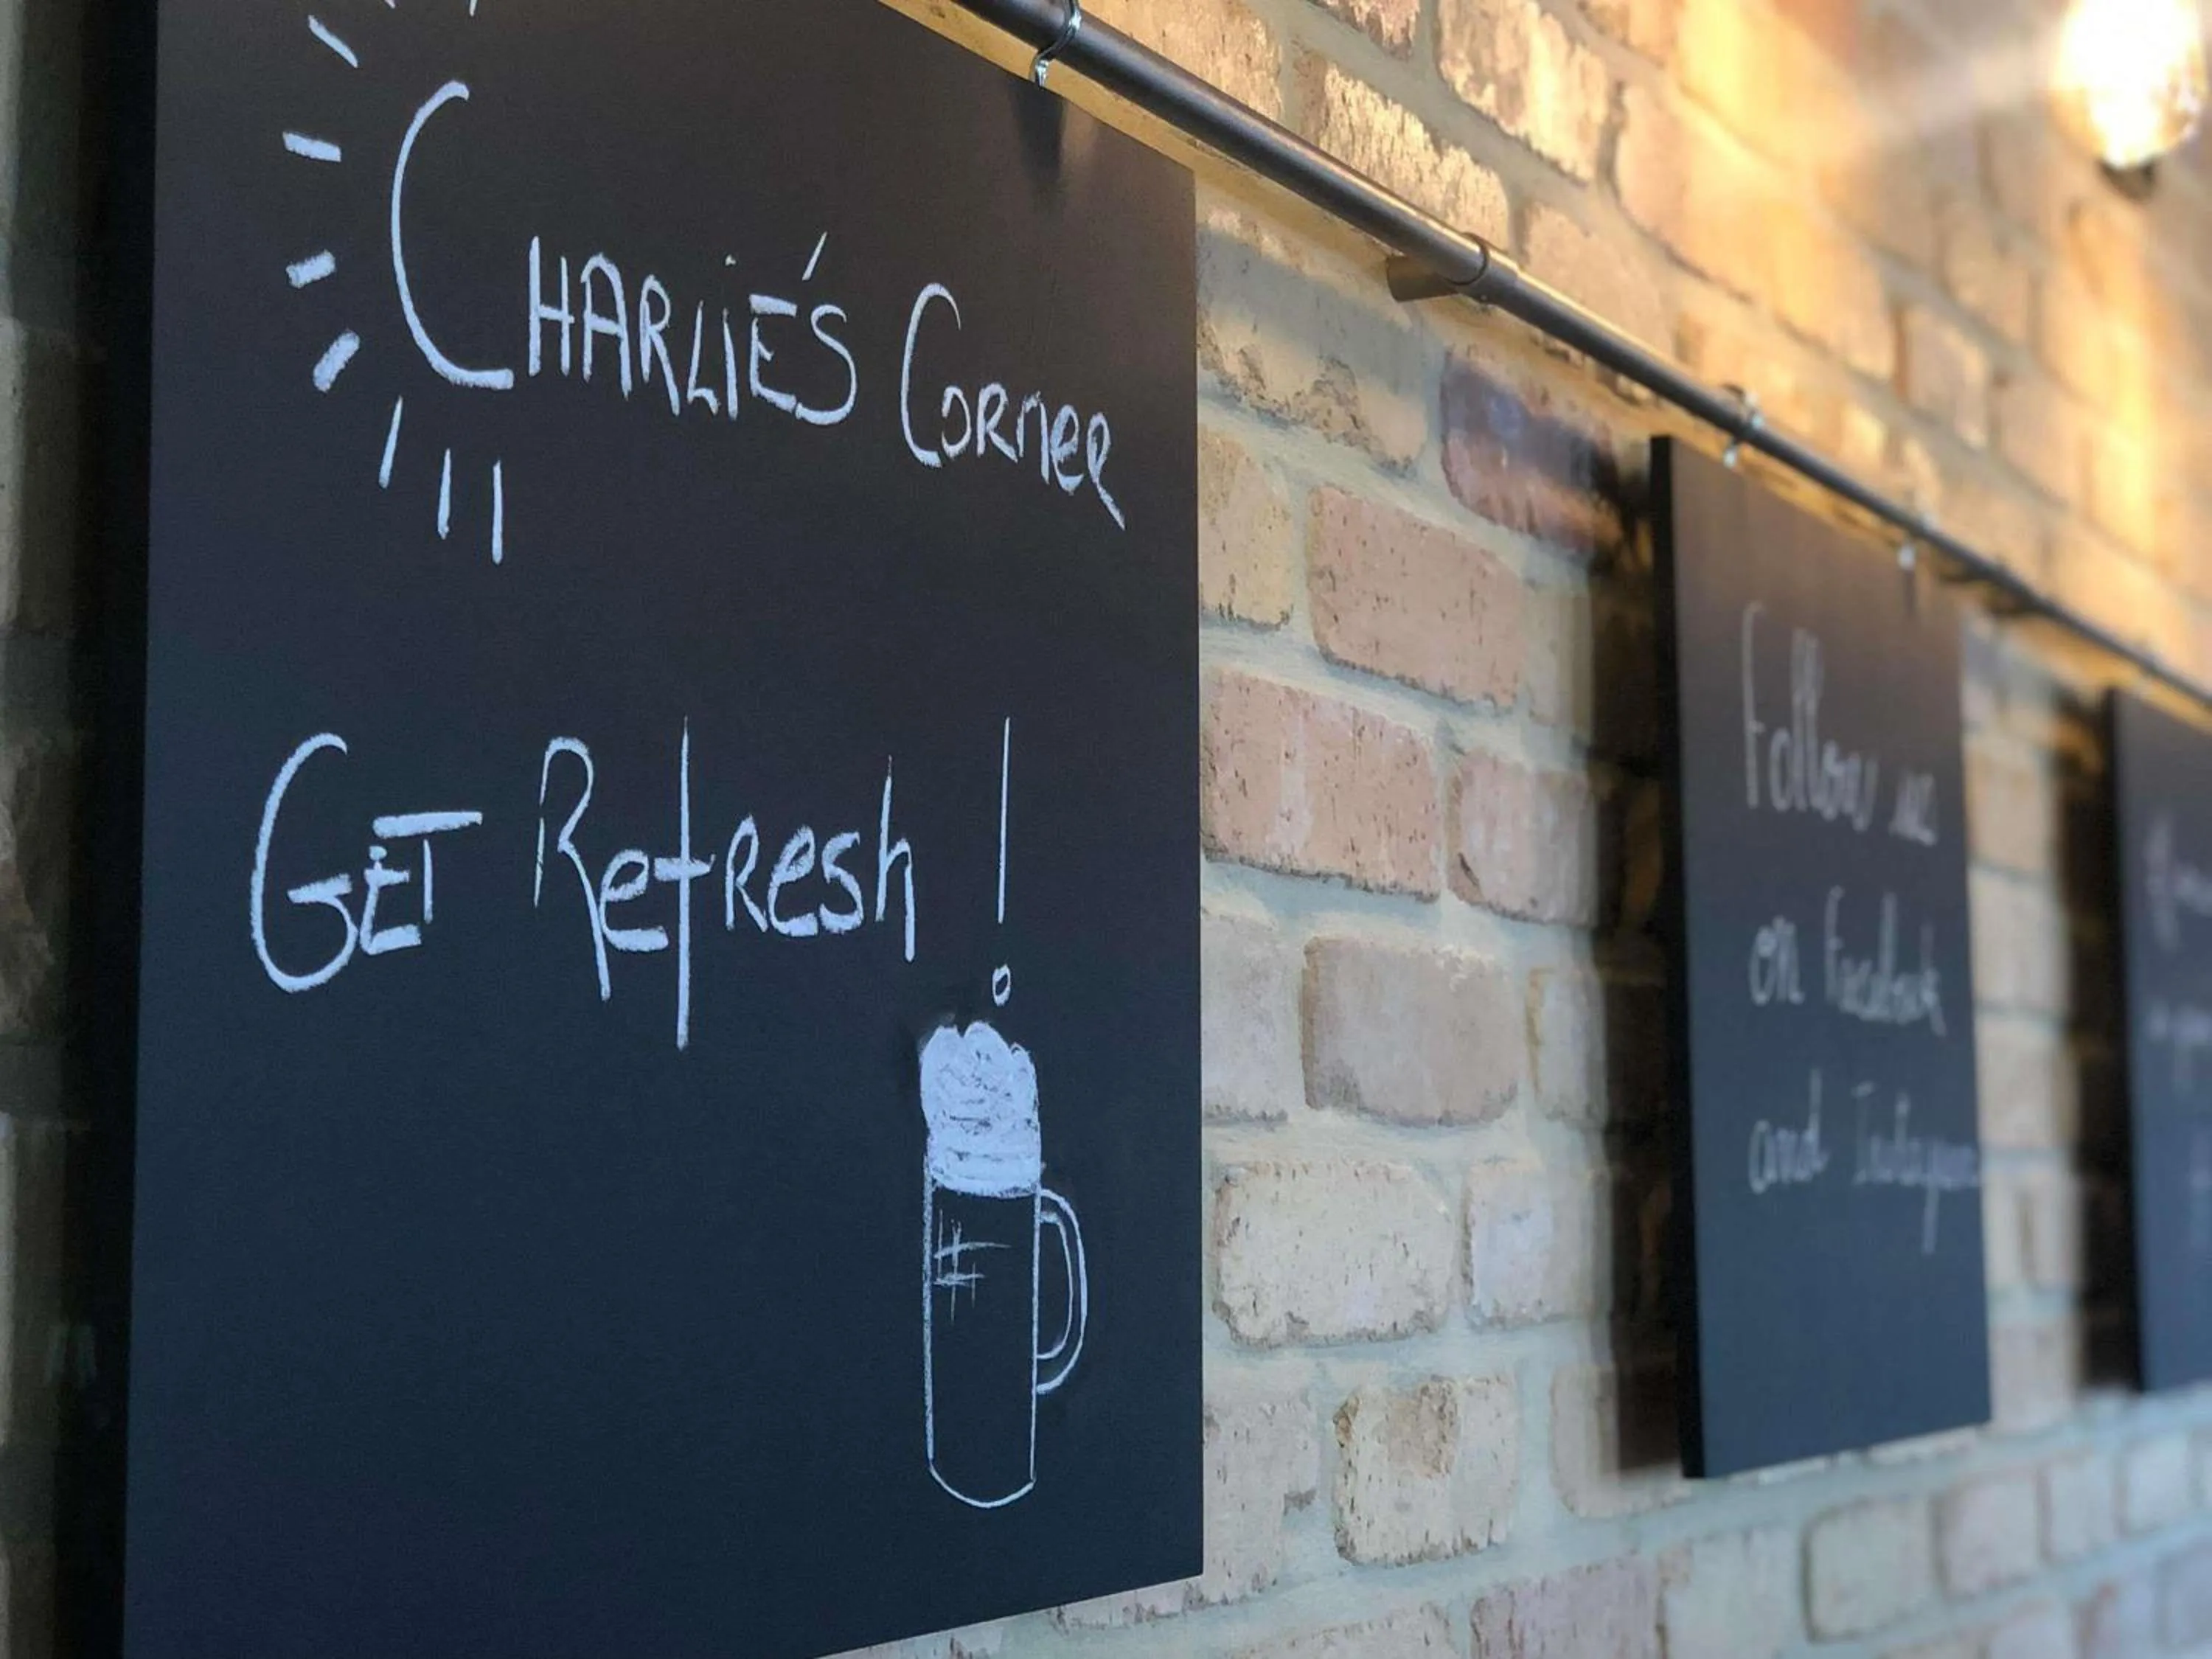 CHARLIE'S CORNER
GET Refresh!
Follow us
on Facebook
and Instagram